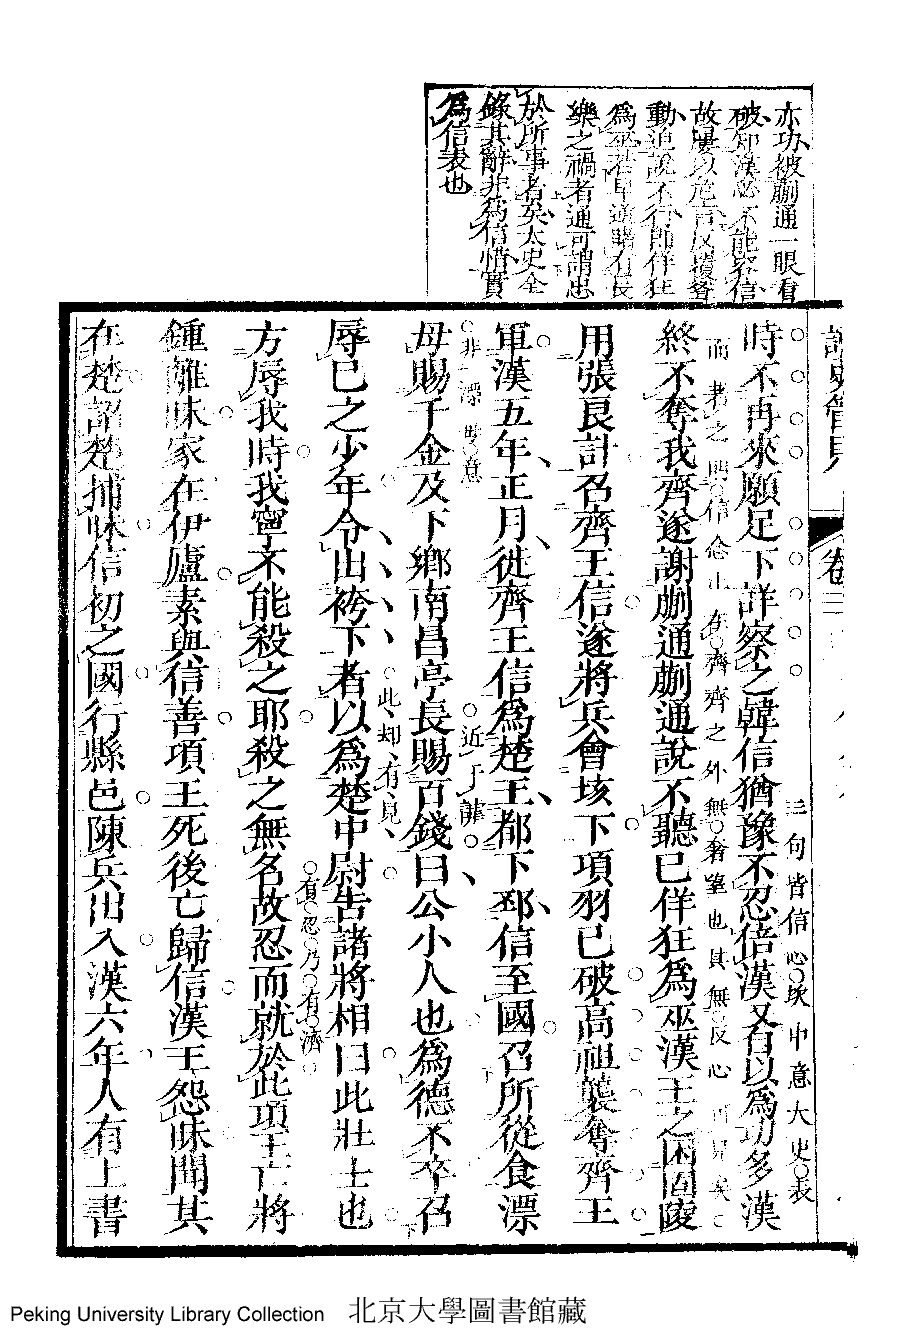 亦功被蒯通一眼看
破知漢必不能容信
故屢以危言反覆聳
動迨說不行即佯狂
為巫若早逆睹有長
樂之禍者通可謂忠
於所事者矣太史全
錄其辭非為信惜實
為信表也
三句皆信心坎中意太史表
時不再來願足下詳察之韓信猶豫不忍倍漢又自以為功多漢
而者之熙信念止在齊齊之外無奢望也其無反心可見矣
終不奪我齊遂謝蒯通蒯通說不聽已佯狂為巫漢王之困固陵
用張良計召齊王信遂將兵會垓下項羽已破高祖襲奪齊王
軍漢五年正月徙齊王信為楚王都下邳信至國召所從食漂
非漂母意
近于薄
母賜千金及下鄉南昌亭長賜百錢曰公小人也為德不卒召
此却有見
辱己之少年令出袴下者以為楚中尉告諸將相曰此壯士也
有忍乃有濟
方辱我時我寧不能殺之耶殺之無名故忍而就於此項王亡將
鍾離昧家在伊廬素與信善項王死後亡歸信漢王怨昧聞其
在楚詔楚捕昧信初之國行縣邑陳兵出入漢六年人有上書
讀史管見 卷二
Peking University Library Collection 北京大學圖書館藏